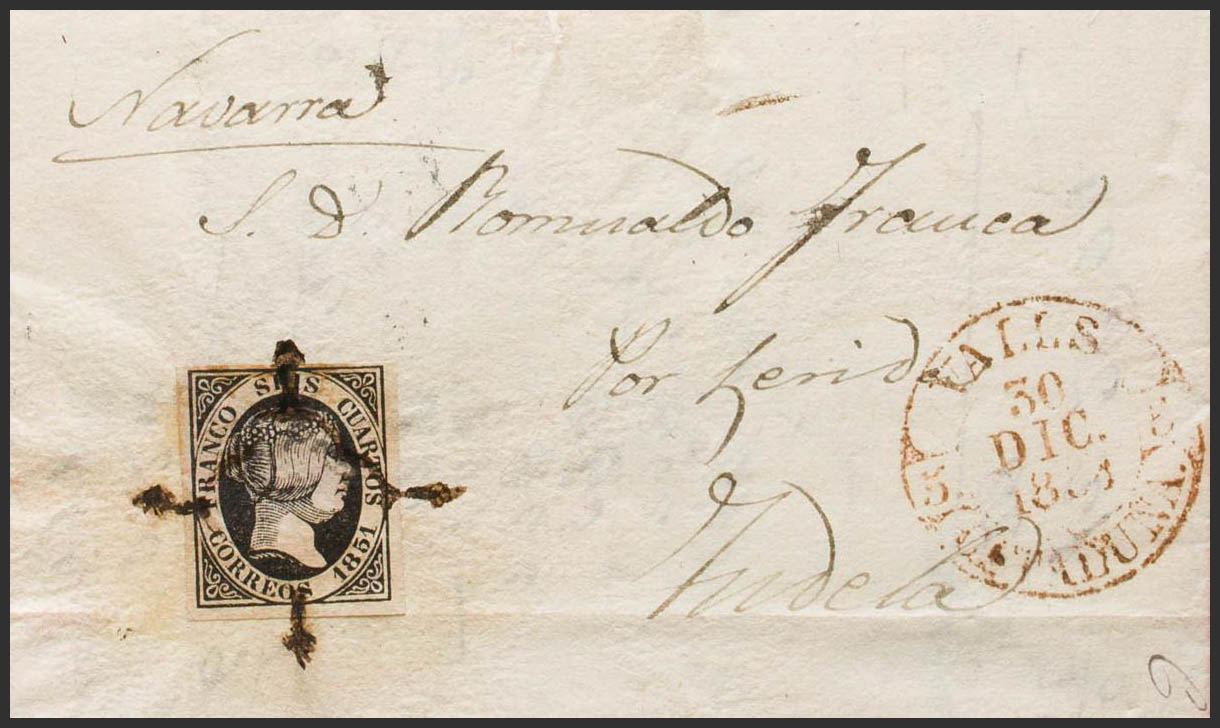 Navarra
S. D. Romualdo Franca
Por Lerida
Tudela
FRANCO SEIS CUARTOS
CORREOS 1851
VALLS
30
DIC.